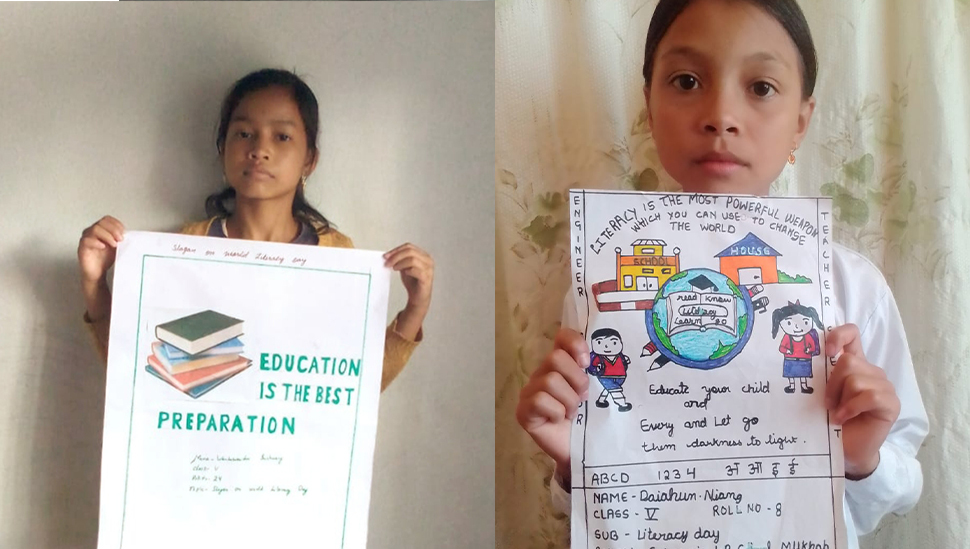 Slogan on World Literacy Day
EDUCATION
IS THE BEST
PREPARATION
Name -
Class - V
Roll - 24
Topic - Slogan on world Literacy Day
LITERACY IS THE MOST POWERFUL WEAPON
WHICH YOU CAN USE TO CHANGE
THE WORLD
ENGINEER
TEACHER
SCHOOL
HOUSE
read know
Literacy
Learn go
Educate your child
and
Every and Let go
them darkness to light.
ABCD 1234 अ आ इ ई
NAME - Daiahun. Niang
CLASS - V ROLL NO - 8
SUB - Literacy day